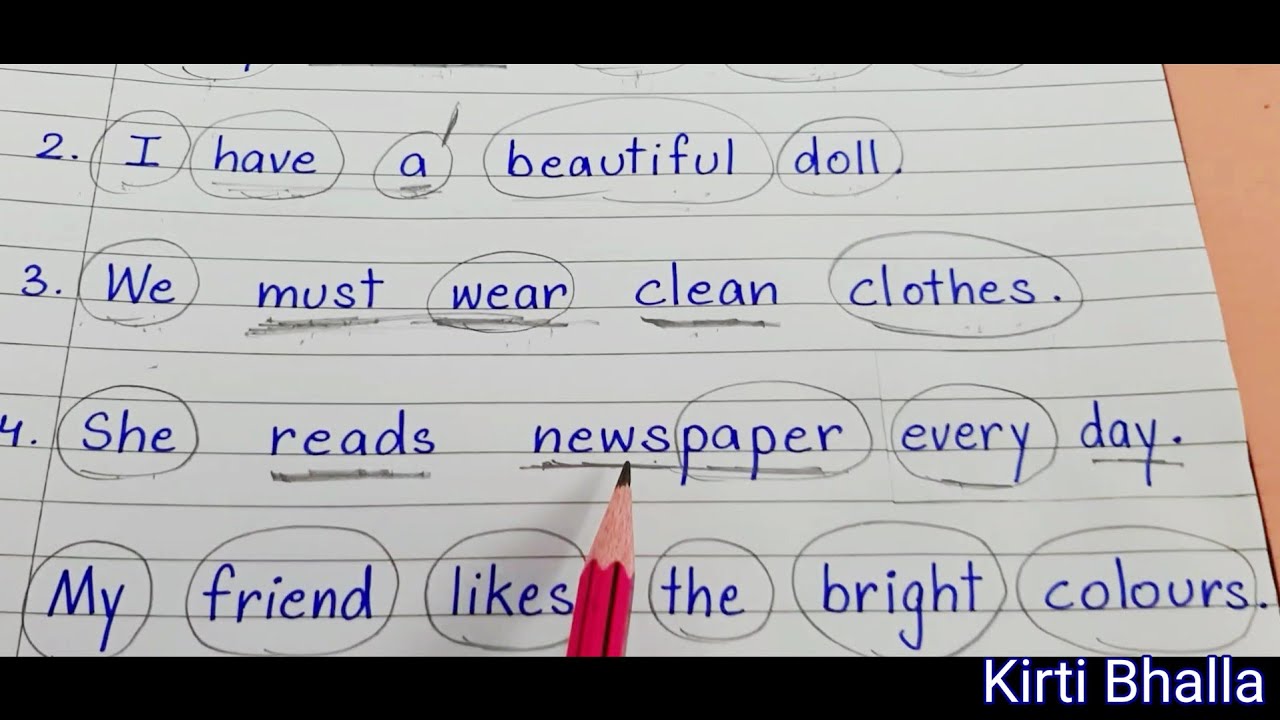 2. I have a beautiful doll.
3. We must wear clean clothes.
4. She reads newspaper every day.
My friend likes the bright colours.
Kirti Bhalla